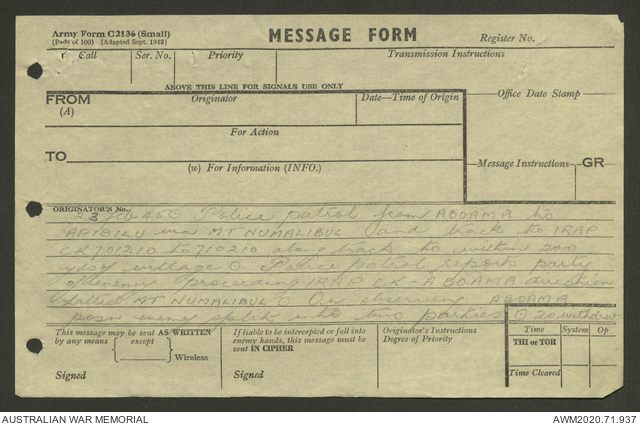 Army Form C2136 (Small)
(Pads of 100) (Adapted Sept. 1942)
MESSAGE FORM
Register No.
Call
Ser. No.
Priority
Transmission Instructions
ABOVE THIS LINE FOR SIGNALS USE ONLY
FROM
(A)
Originator
Date—Time of Origin
Office Date Stamp
For Action
TO
(w) For Information (INFO.)
Message Instructions
GR
ORIGINATOR'S No.
Police patrol from ABOAMA to
AFIBILU via MT NUMALIBUL and track to IRAP
CK 701210 to 710210 track to within 200
yds of village Police patrol reports party
of enemy proceeding IRAP CK ABOAMA direction
MT NUMALIBUL On observing ABOAMA
posn enemy split into two parties 20 withdrew
This message may be sent AS WRITTEN
by any means except
Wireless
Signed
If liable to be intercepted or fall into
enemy hands, this message must be
sent IN CIPHER
Signed
Originator's Instructions
Degree of Priority
Time
System
Op
THI or TOR
Time Cleared
AUSTRALIAN WAR MEMORIAL
AWM2020.71.937